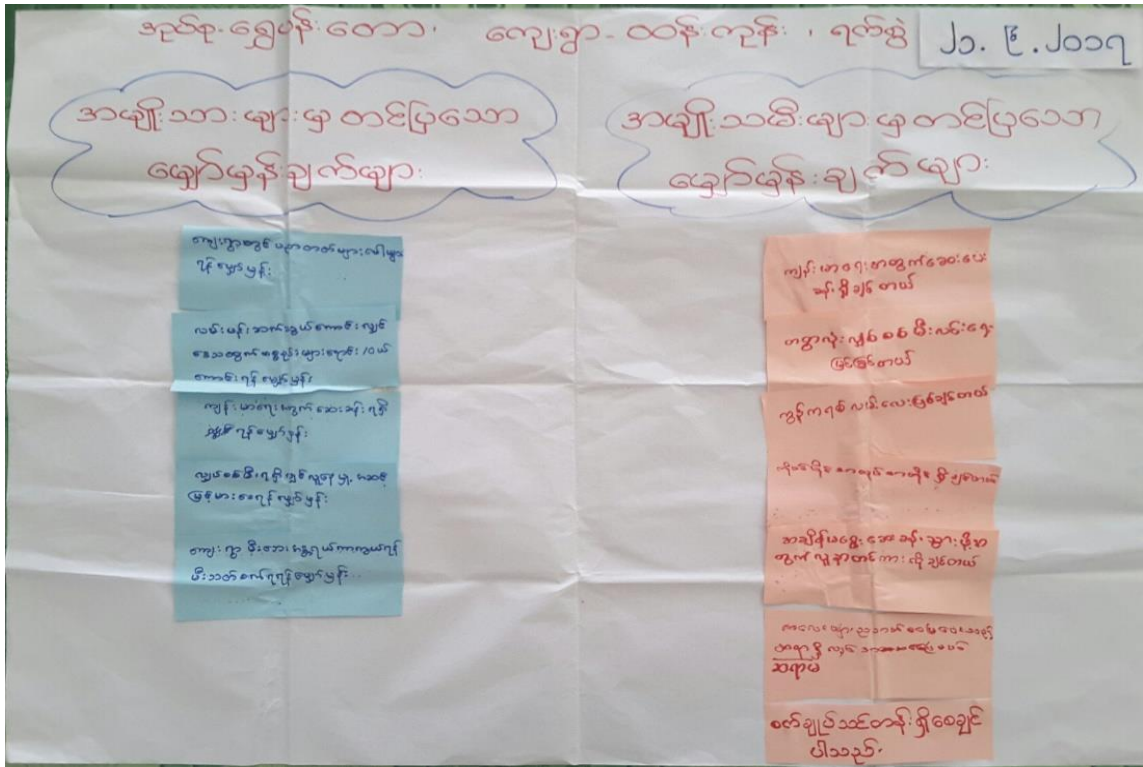 အုပ်စု-ရွှေပန်းတော၊ ကျေးရွာ-ထန်းကုန်း၊ ရက်စွဲ ၂၁.၆.၂၀၁၇
အမျိုးသားများမှတင်ပြသော
မျှော်မှန်းချက်များ
ကျေးရွာတွင် ပညာတတ်များပေါများ
ရန်မျှော်မှန်း
လမ်းပန်းဆက်သွယ်ကောင်းလျှင်
ဒေသထွက်ပစ္စည်းများရောင်း/ဝယ်
ကောင်းရန်မျှော်မှန်း
ကျန်းမာရေးအတွက် ဆေးခန်းရရှိ
ရန်မျှော်မှန်း
လျှပ်စစ်မီးရရှိ၍ လူနေမှုအဆင့်
မြင့်မားစေရန်မျှော်မှန်း
ကျေးရွာ မီးဘေးအန္တရာယ်ကာကွယ်ရန်
မီးသတ်စက်ရရန်မျှော်မှန်း
အမျိုးသမီးများမှတင်ပြသော
မျှော်မှန်းချက်များ
ကျန်းမာရေးအတွက်ဆေးပေး
ခန်းရှိချင်တယ်
တရွာလုံးလျှပ်စစ်မီးလင်းရေး
ဖြစ်ချင်တယ်
ကွန်ကရစ်လမ်းလေးဖြစ်ချင်တယ်
ရှိချင်တယ်
အချိန်မရွေးဆေးခန်းသွားဖို့အ
တွက်လူနာတင်ကားလိုချင်တယ်
ကလေးများ
ဆရာမ
စက်ချုပ်သင်တန်းရှိစေချင်
ပါသည်။